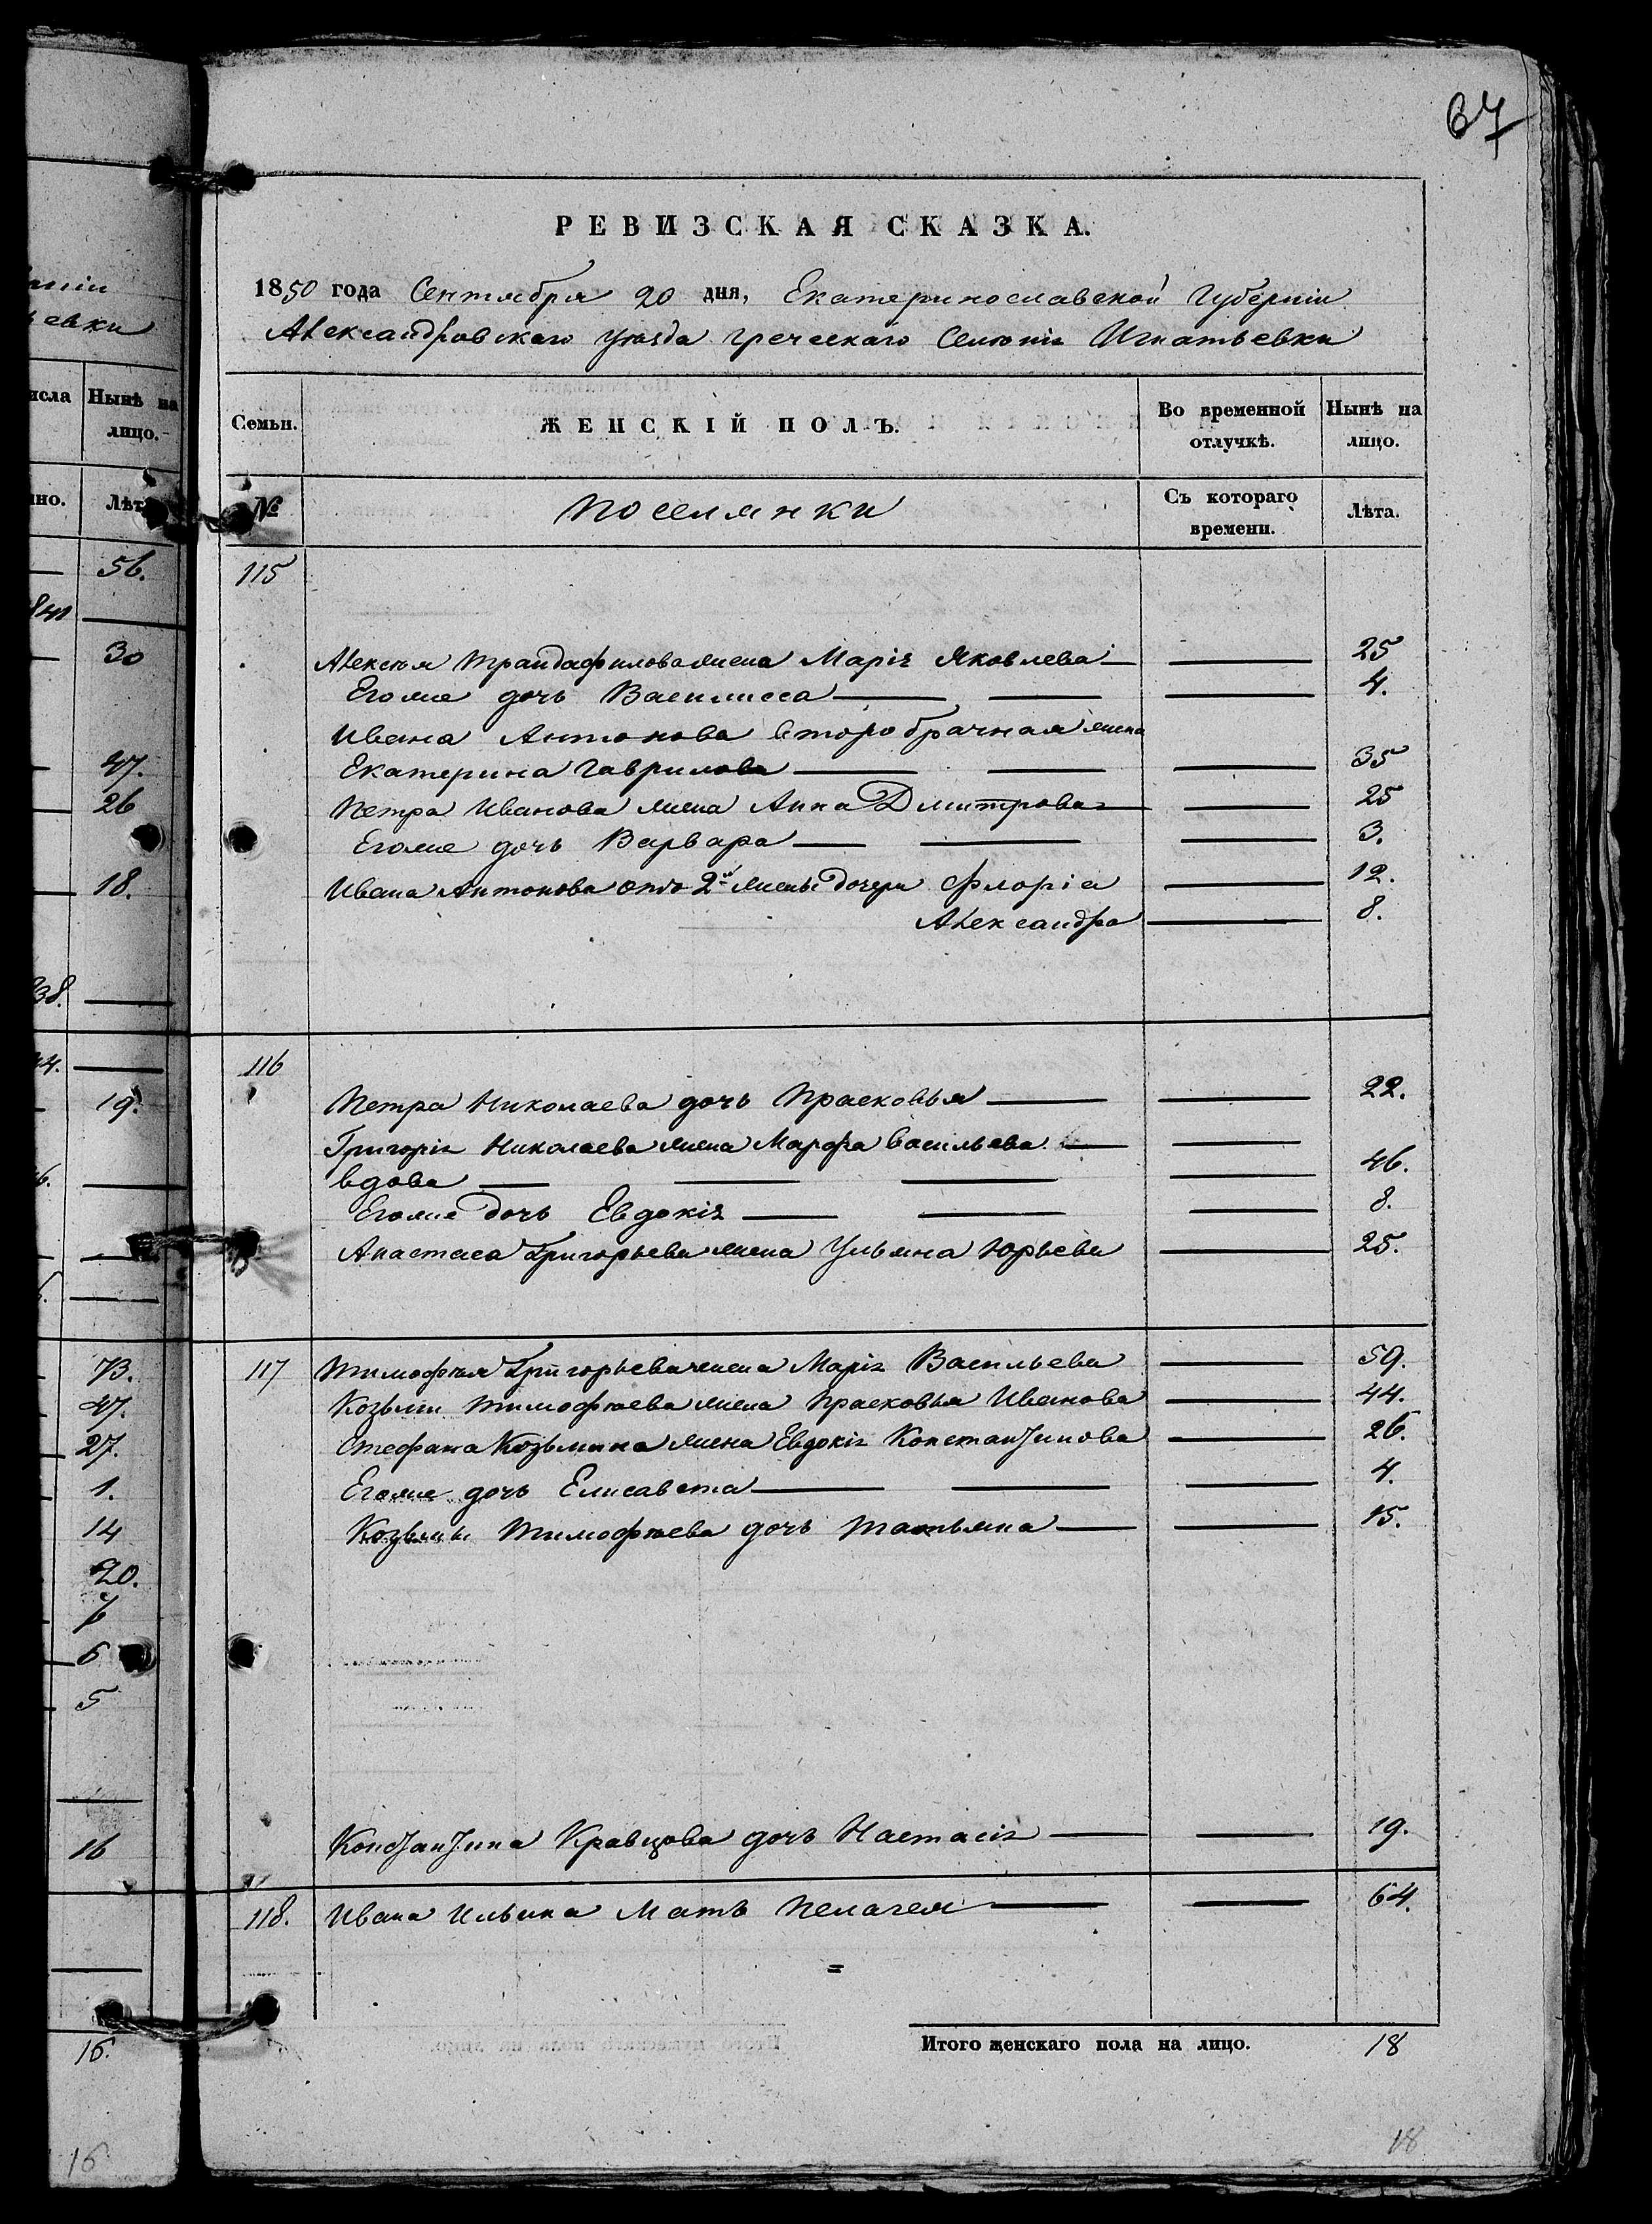 67
РЕВИЗСКАЯ СКАЗКА.
1850 года Сентября 20 дня, Екатеринославской Губерніи
Александровскаго уѣзда греческаго Селенія Игнатьевки
Семьи. ЖЕНСКІЙ ПОЛЪ. Во временной отлучкѣ. Нынѣ на лицо.
№ Поселянки Съ котораго времени. Лѣта.
115
Алексѣя Трандафилова жена Марія Яковлева — 25
Егоже дочь Василисса — 4.
Ивана Антонова второбрачная жена
Екатерина Гаврилова — 35
Петра Иванова жена Анна Дмитрова — 25
Егоже дочь Варвара — 3.
Ивана Антонова отъ 2й жены дочери Флорія — 12.
Александра — 8.
116
Петра Николаева дочь Прасковья — 22.
Григорія Николаева жена Марфа Васильева —
вдова — 46.
Егоже дочь Евдокія — 8.
Анастаса Григорьева жена Ульяна Юрьева — 25.
117 Тимофѣя Григорьева жена Марія Васильева — 59.
Козьмы Тимофѣева жена Прасковья Иванова — 44.
Стефана Козьмина жена Евдокія Константинова — 26.
Егоже дочь Елисавета — 4.
Козьмы Тимофѣева дочь Татьяна — 15.
Константина Кравцова дочь Настасія — 19.
118. Ивана Ильина Мать Пелагея — 64.
Итого женскаго пола на лицо. 18
18
евки
Нынѣ на
лицо.
Лѣт
56.
30
47.
26
18.
38.
44.
19.
73.
47.
27.
1.
14
20.
7
6
5
16
16.
16